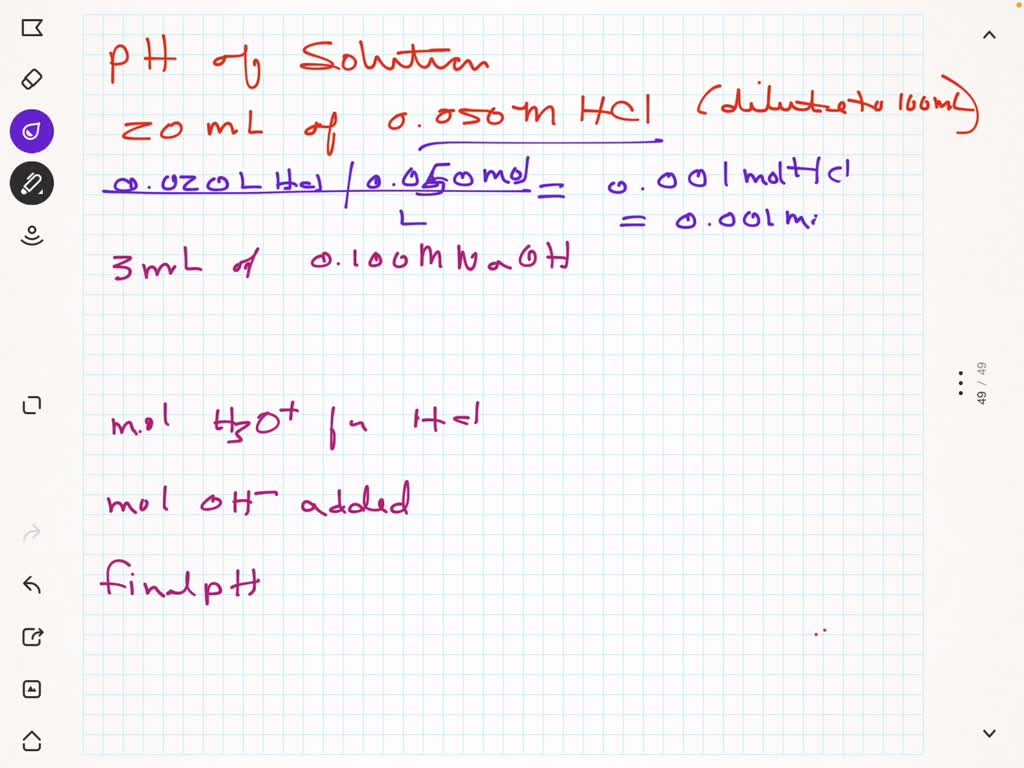 pH of Solution
20 mL of 0.050 M HCl (dilute to 100 mL)
0.020 L HCl | 0.050 mol = 0.001 mol HCl
L = 0.001 m
3 mL of 0.100 M NaOH
mol H3O+ fr HCl
mol OH- added
final pH
49 / 49